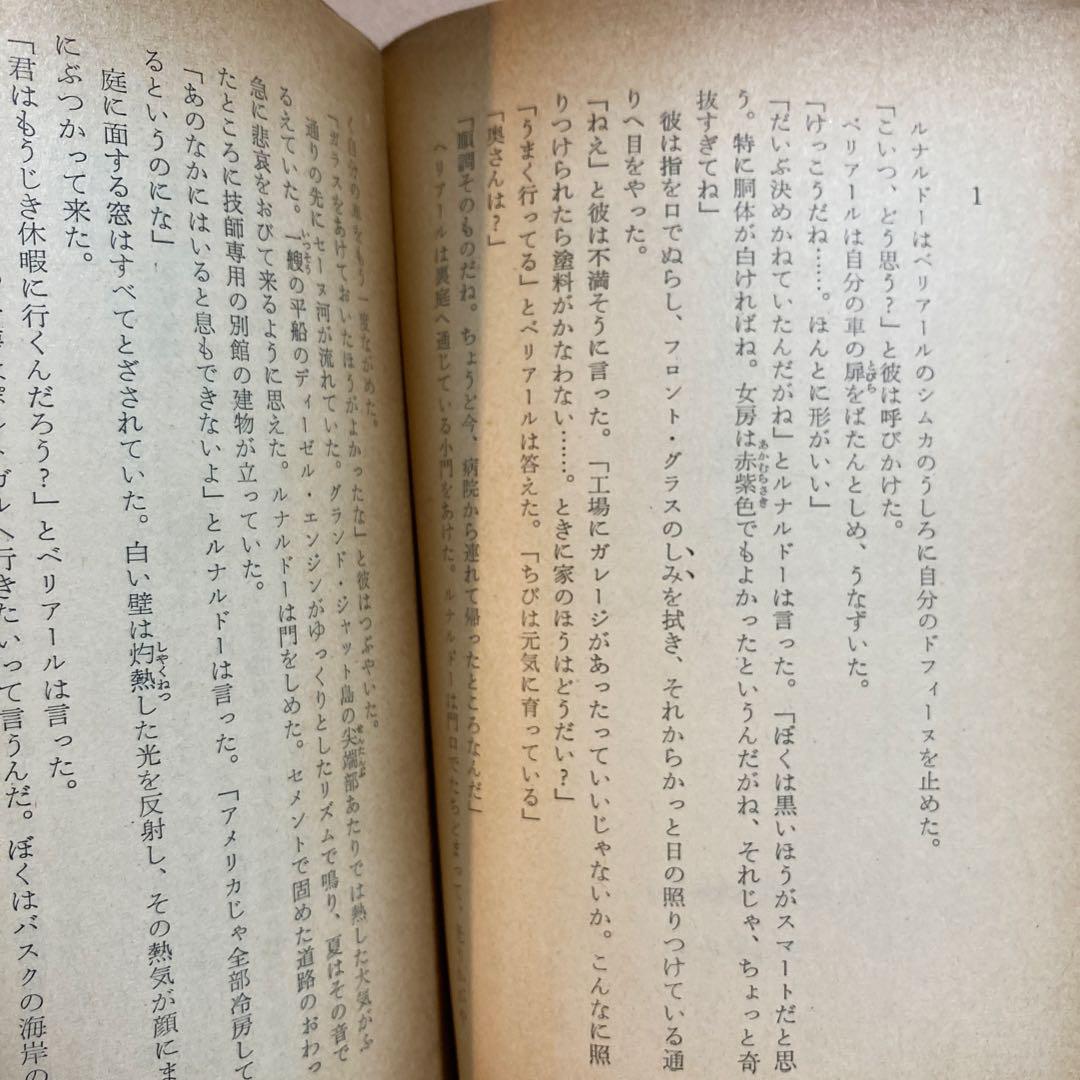 1
ルナルドーはベリアールのシムカのうしろに自分のドフィーヌを止めた。
「こいつ、どう思う?」と彼は呼びかけた。
ベリアールは自分の車の扉をばたんとしめ、うなずいた。
とびら
「けっこうだね……。ほんとに形がいい」
「だいぶ決めかねていたんだがね」とルナルドーは言った。「ぼくは黒いほうがスマートだと思
う。特に胴体が白ければね。女房は赤紫色でもよかったというんだがね、それじゃ、ちょっと奇
あかむらさき
抜すぎてね」
彼は指を口でぬらし、フロント・グラスのしみを拭き、それからかっと日の照りつけている通
りへ目をやった。
「ねえ」と彼は不満そうに言った。「工場にガレージがあったっていいじゃないか。こんなに照
りつけられたら塗料がかなわない……。ときに家のほうはどうだい?」
「うまく行ってる」とベリアールは答えた。「ちびは元気に育っている」
「奥さんは?」
「順調そのものだね。ちょうど今、病院から連れて帰ったところなんだ」
ベリアールは裏庭へ通じている小門をあけた。ルナルドーは門口でたちどまって、
自分の車をもう一度ながめた。
「ガラスをあけておいたほうがよかったな」と彼はつぶやいた。
通りの先にセーヌ河が流れていた。グランド・ジャット島の尖端部あたりでは熱した大気がふ
せんたんぶ
るえていた。一艘の平船のディーゼル・エンジンがゆっくりとしたリズムで鳴り、夏はその音で
いっそう
急に悲哀をおびて来るように思えた。ルナルドーは門をしめた。セメントで固めた道路のおわっ
たところに技師専用の別館の建物が立っていた。
「あのなかにはいると息もできないよ」とルナルドーは言った。「アメリカじゃ全部冷房して
るというのにな」
庭に面する窓はすべてとざされていた。白い壁は灼熱した光を反射し、その熱気が顔にま
しゃくねつ
にぶつかって来た。
「君はもうじき休暇に行くんだろう?」とベリアールは言った。
ガルへ行きたいって言うんだ。ぼくはバスクの海岸の